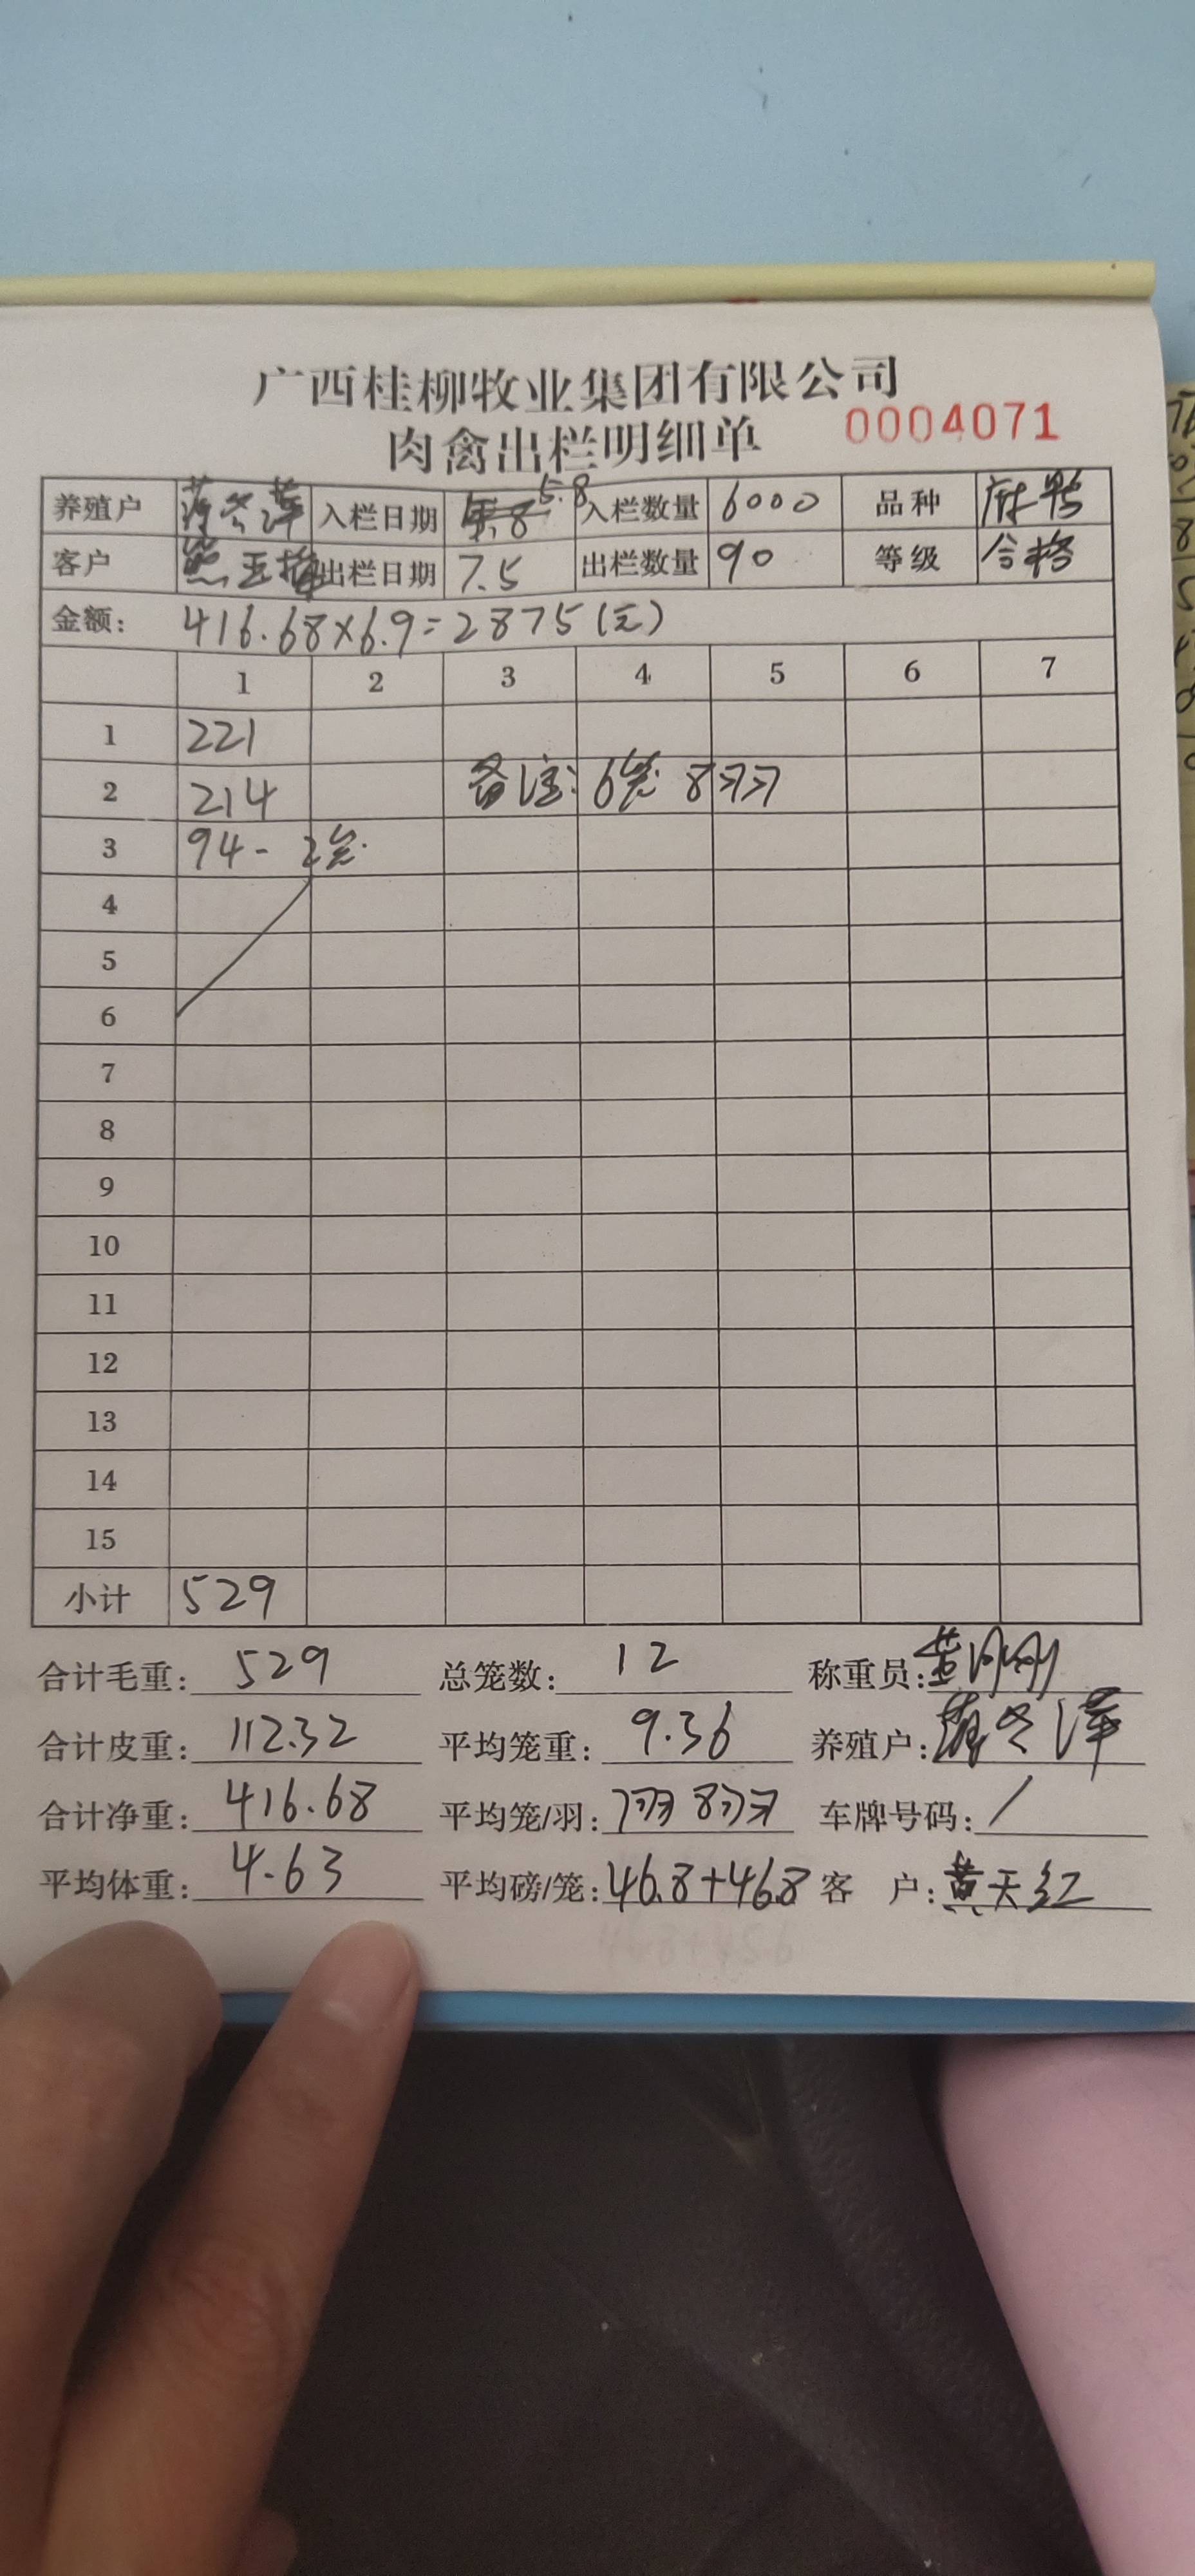 广西桂柳牧业集团有限公司
肉禽出栏明细单 0004071
养殖户 入栏日期 5.8 入栏数量 6000 品种 麻鸭
客户 出栏日期 7.5 出栏数量 90 等级 合格
金额: 416.68×6.9=2875(元)
1 2 3 4 5 6 7
1 221
2 214 备注: 6笼 8羽
3 94- 2笼.
4
5
6
7
8
9
10
11
12
13
14
15
小计 529
合计毛重: 529 总笼数: 12 称重员:
合计皮重: 112.32 平均笼重: 9.36 养殖户:
合计净重: 416.68 平均笼/羽: 8羽 车牌号码: /
平均体重: 4.63 平均磅/笼: 46.8+46.8 客 户: 黄天红